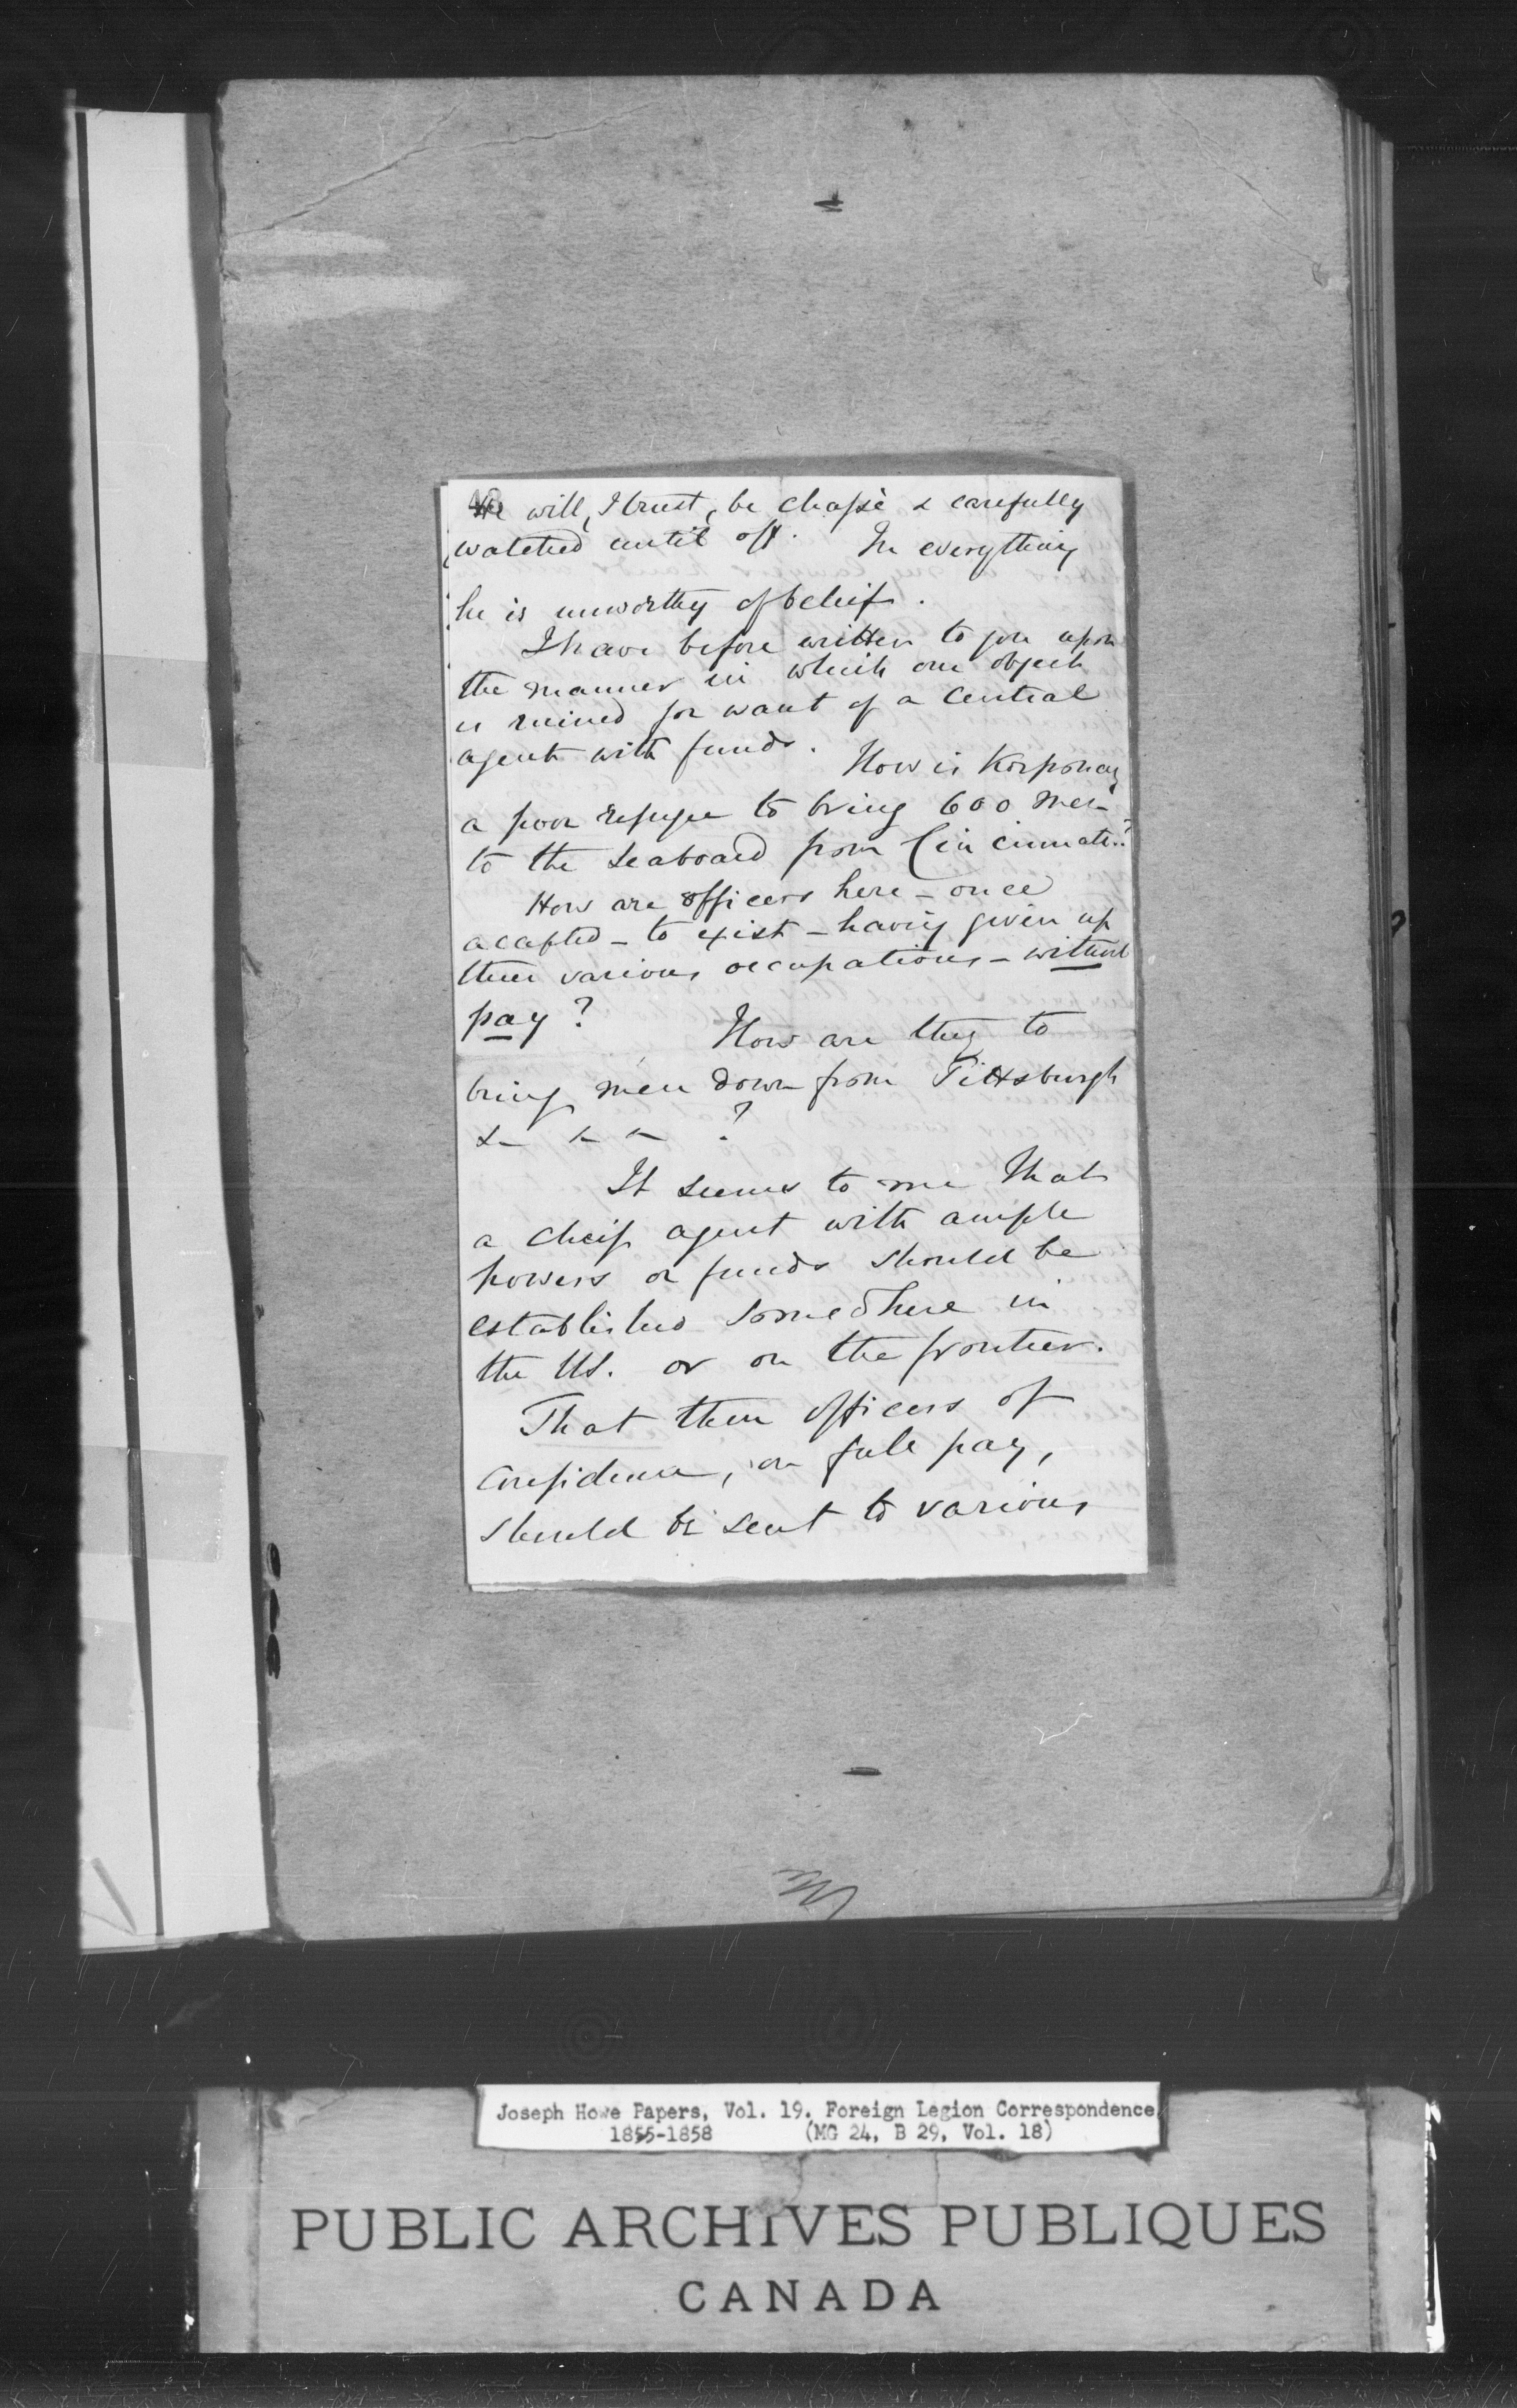 He will, I trust, be chassé & carefully
watched until off. In everything
he is unworthy of belief.
I have before written to you upon
the manner in which our object
is ruined for want of a Central
agent with funds. How is Korponay
a poor refugee to bring 600 men
to the seaboard from Cincinnati?
How are officers here - once
accepted - to exist - having given up
their various occupations - without
pay? How are they to
bring men down from Pittsburgh
& & & ?
It seems to me that
a chief agent with ample
powers or funds should be
established somewhere in
the US. or on the frontier.
That then officers of
confidence, on full pay,
should be sent to various
Joseph Howe Papers, Vol. 19. Foreign Legion Correspondence
1855-1858 (MG 24, B 29, Vol. 18)
PUBLIC ARCHIVES PUBLIQUES
CANADA